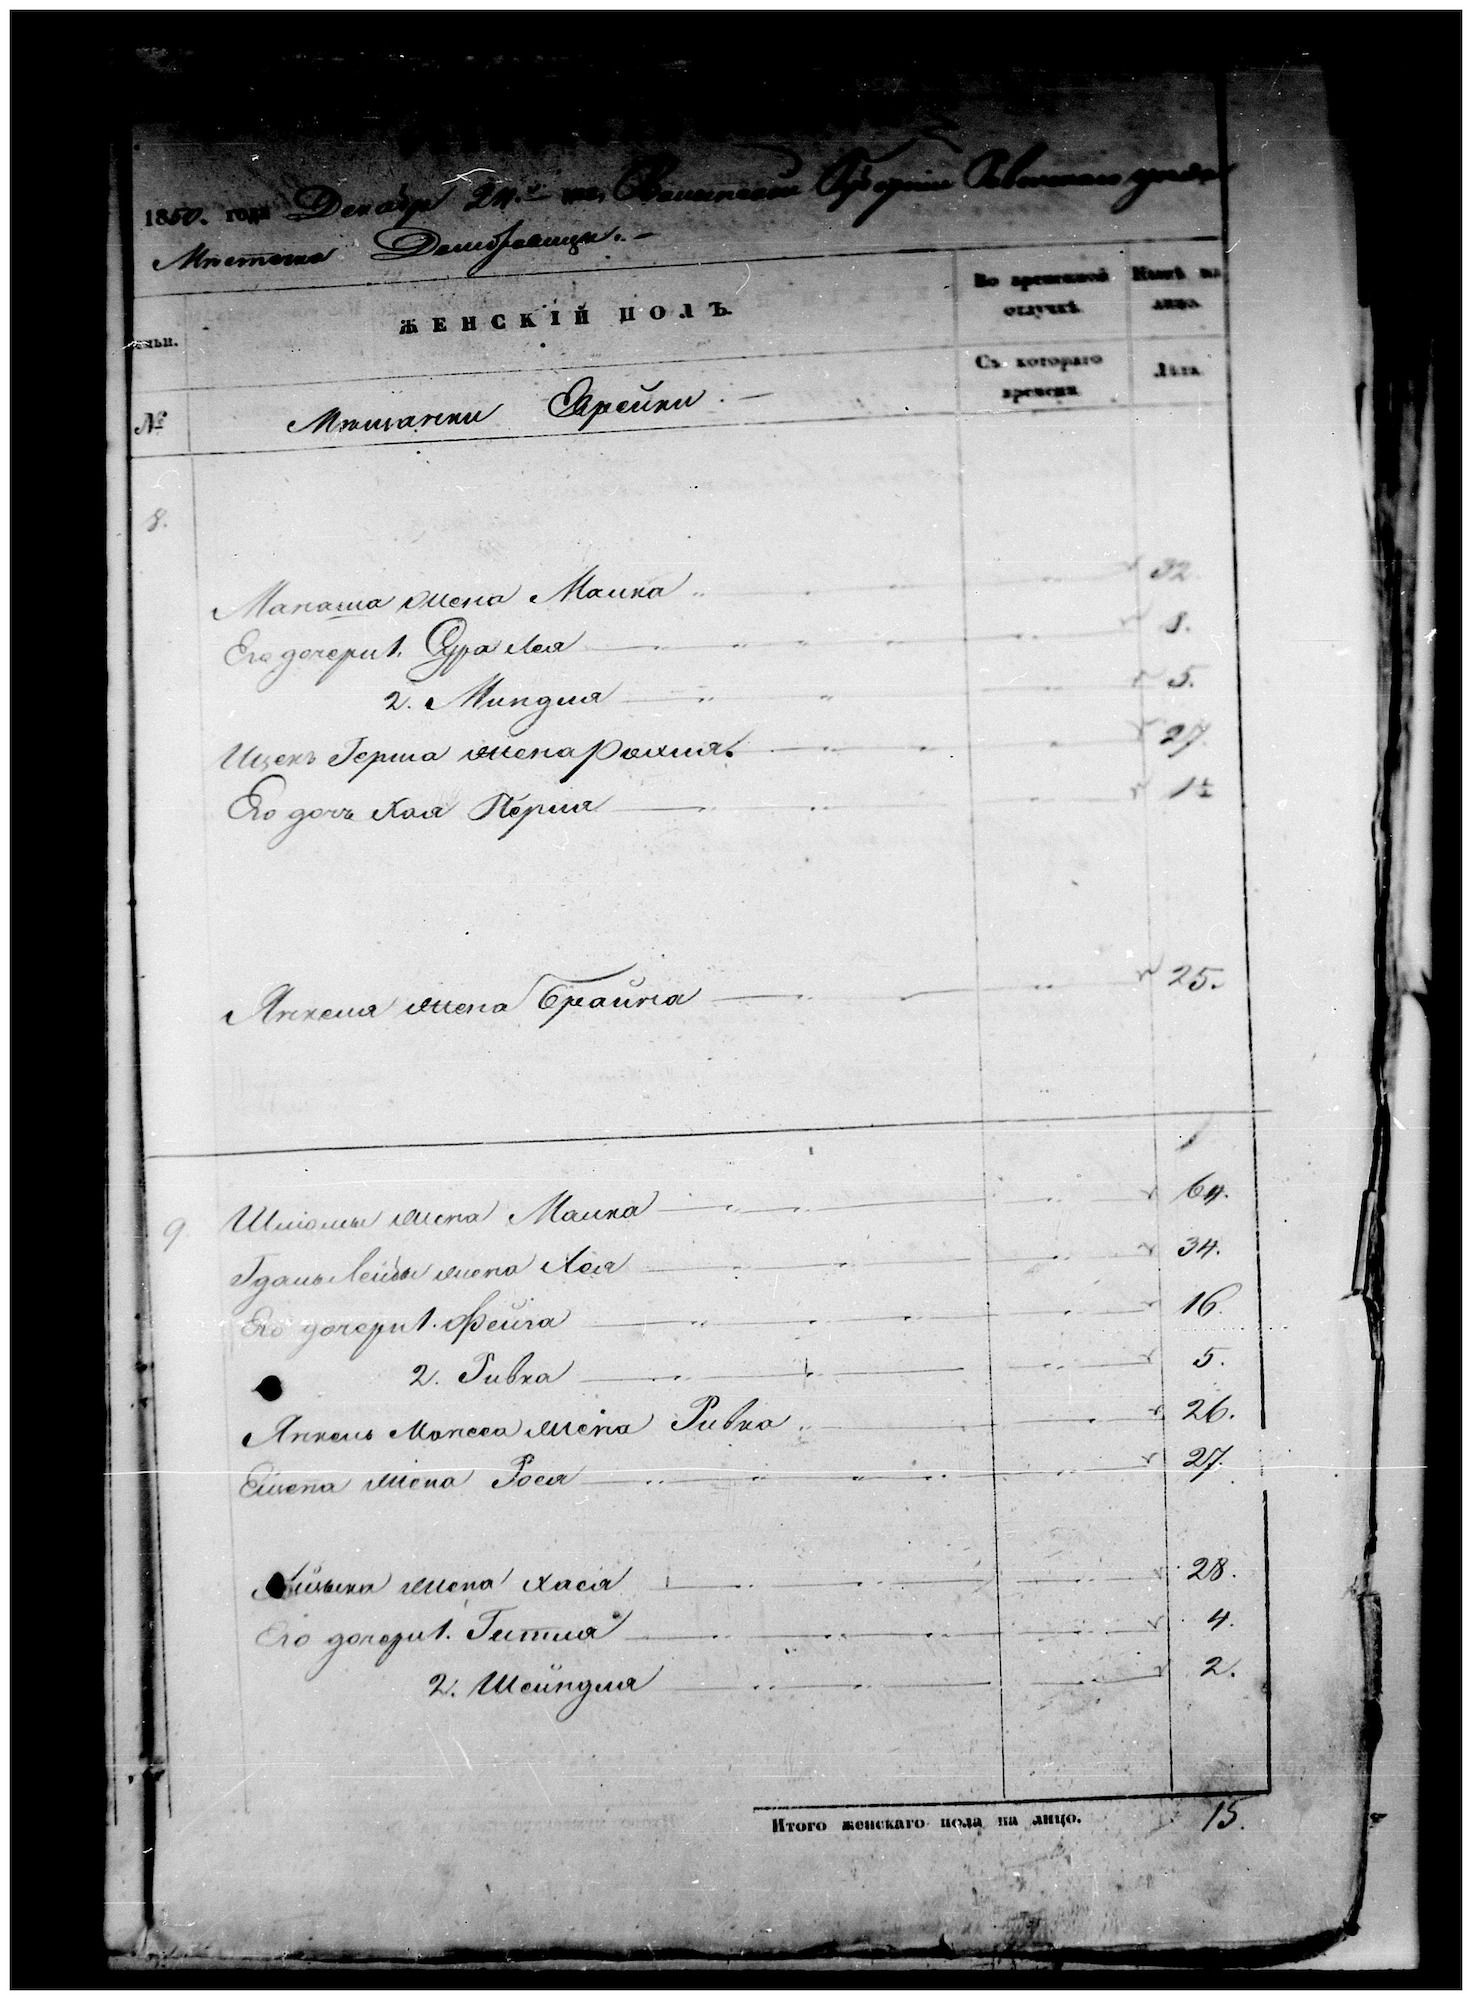 1850. года Декабря 24.го дня Волынской Губернии Ровенского уезда
Местечка Домбровицы.
ЖЕНСКІЙ ПОЛЪ.
Во временной отлучкѣ.
Нынѣ на лицо.
Съ котораго времени
Лѣта
№
Мѣщанки Еврейки.
8.
Манаша жена Малка 32.
Его дочери 1. Сура Лея 8.
2. Миндля 5.
Ицекъ Герша жена Рохля. 27
Его дочь Хая Перля 1½
Янкеля жена Брайна 25.
9. Шліомы жена Малка 64.
Гдаль Лейбы жена Хая 34.
Его дочери 1. Фейга 16.
2. Ривка 5.
Янкель Мошка жена Ривка 26.
жена Рося 27.
жена Хася 28.
Его дочери 1. Гитля 4.
2. Шейндля 2.
Итого женскаго пола на лицо. 15.